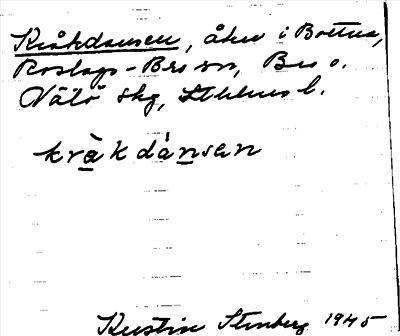 Kråkdansen, åker i Bottna,
Roslags-Bro sn, Bro o.
Vätö skg, Sthlms l.
kråkdánsen
Kerstin Stenberg 1945